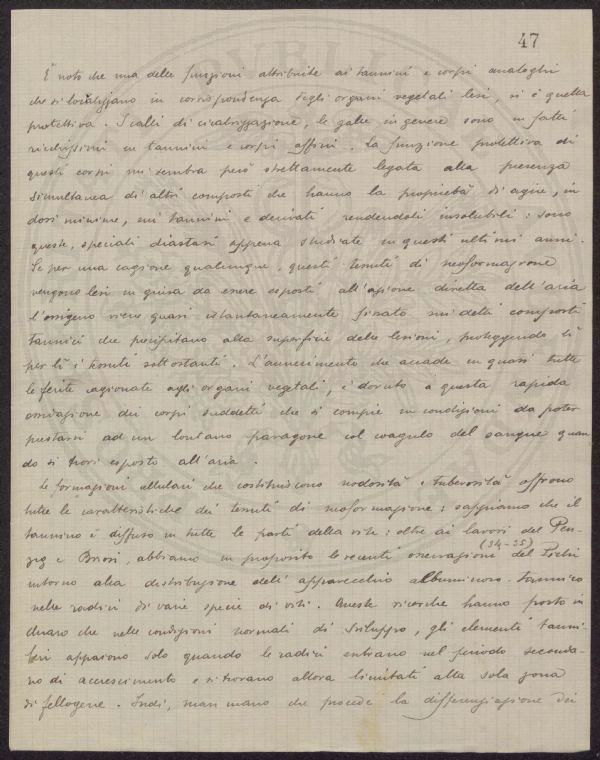 47
È noto che una delle funzioni attribuite ai tannini e corpi analoghi
che si localizzano in corrispondenza degli organi vegetali lesi, si è quella
protettiva. I calli di cicatrizzazione, le galle in genere sono in fatti
ricchissimi in tannini e corpi affini. La funzione protettiva di
questi corpi mi sembra però strettamente legata alla presenza
simultanea di altri composti che hanno la proprietà di agire, in
dosi minime, sui tannini e derivati rendendoli insolubili: sono
queste, speciali diastasi appena studiate in questi ultimi anni.
Se per una cagione qualunque, questi tessuti di neoformazione
vengono lesi in guisa da essere esposti all'azione diretta dell'aria
l'ossigeno viene quasi istantaneamente fissato sui detti composti
tannici che precipitano alla superficie delle lesioni, proteggendo lì
per lì i tessuti sottostanti. L'annerimento che accade in quasi tutte
le ferite cagionate agli organi vegetali, è dovuto a questa rapida
ossidazione dei corpi suddetti che si compie in condizioni da poter
prestarsi ad un lontano paragone col coagulo del sangue quan
do si trovi esposto all'aria.
Le formazioni cellulari che costituiscono nodosità e tuberosità offrono
tutte le caratteristiche dei tessuti di neoformazione; sappiamo che il
tannino è diffuso in tutte le parti della vite: oltre ai lavori del Pen-
zig e Briosi, abbiamo in proposito le recenti osservazioni (34-35) del Pichi
intorno alla distribuzione dell'apparecchio albuminoso-tannico
nelle radici di varie specie di viti. Queste ricerche hanno posto in
chiaro che nelle condizioni normali di sviluppo, gli elementi tanni-
feri appaiono solo quando le radici entrano nel periodo seconda-
rio di accrescimento e si trovano allora limitati alla sola zona
di fellogene. Indi, man mano che procede la differenziazione dei